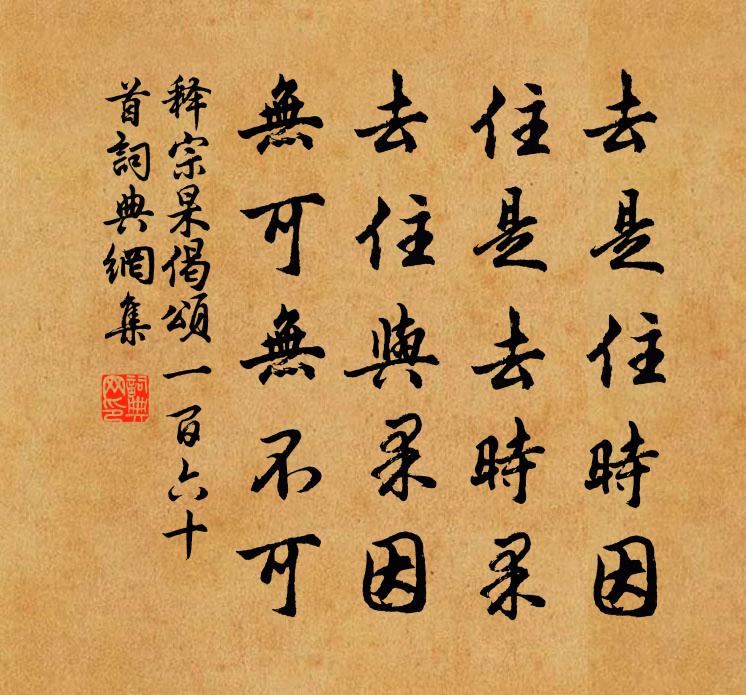 去是住時因
住是去時果
去住與果因
無可無不可
释宗杲偈頌一百六十
首詞典網集
詞典網印